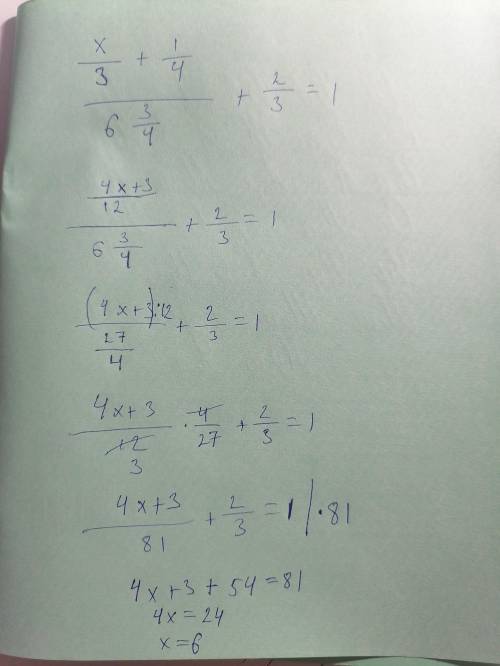 x/3 + 1/4
/ 6 3/4 + 2/3 = 1
4x+3/12
/ 6 3/4 + 2/3 = 1
(4x+3):12 / 27/4 + 2/3 = 1
4x+3/12 3 · 4/27 + 2/3 = 1
4x+3/81 + 2/3 = 1 | · 81
4x+3+54=81
4x=24
x=6